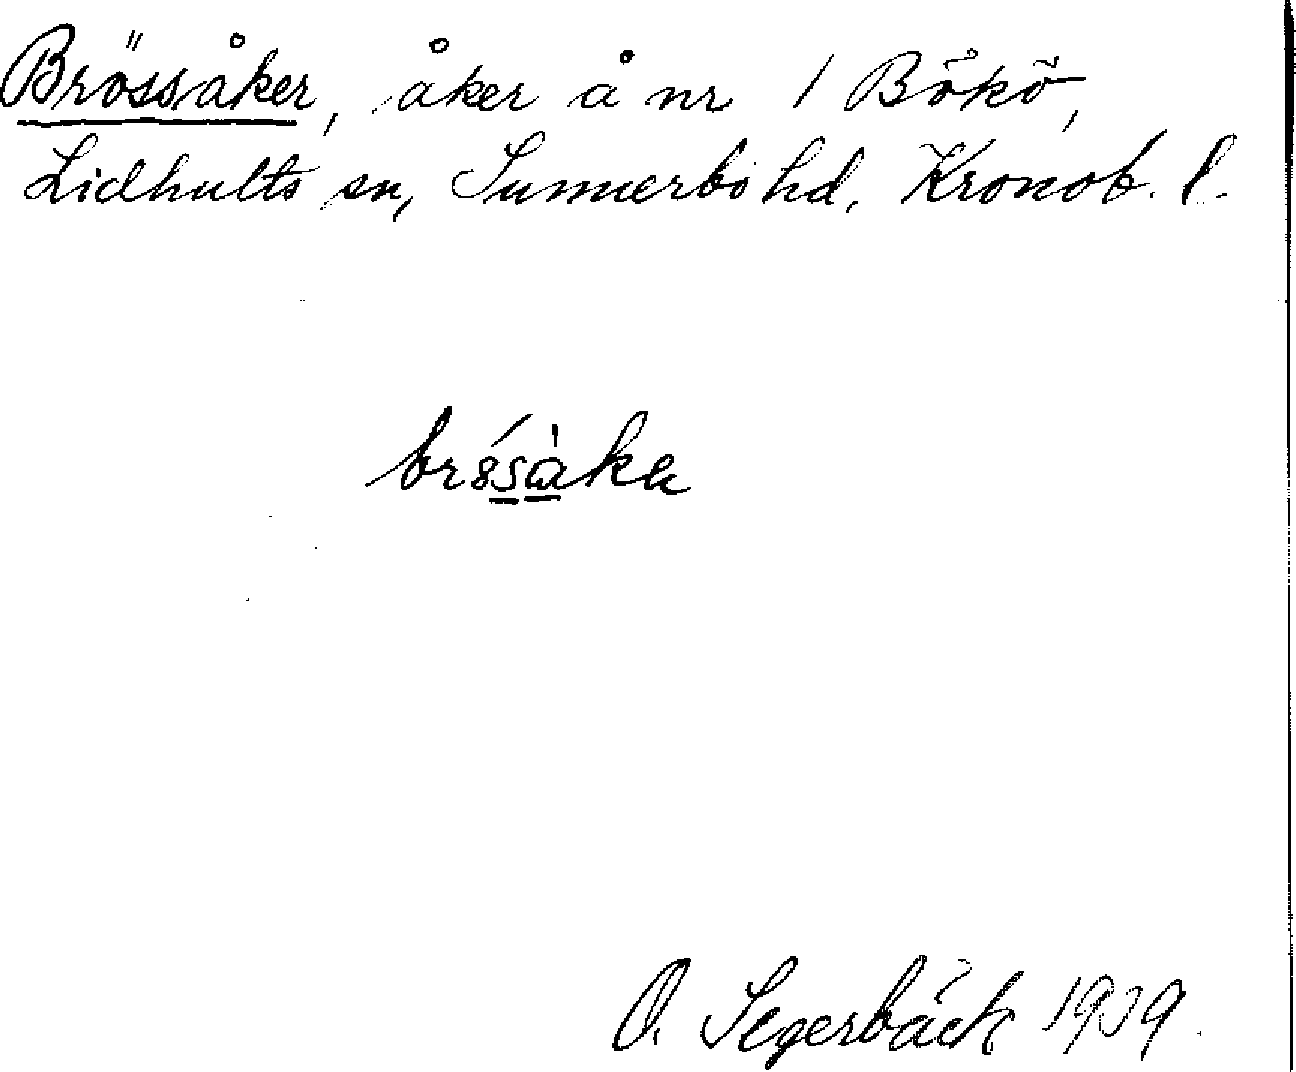 Brössåker, åker å nr 1 Bökö,
Lidhults sn, Sunnerbo hd, Kronob. l.
O. Segerbäck 1939.